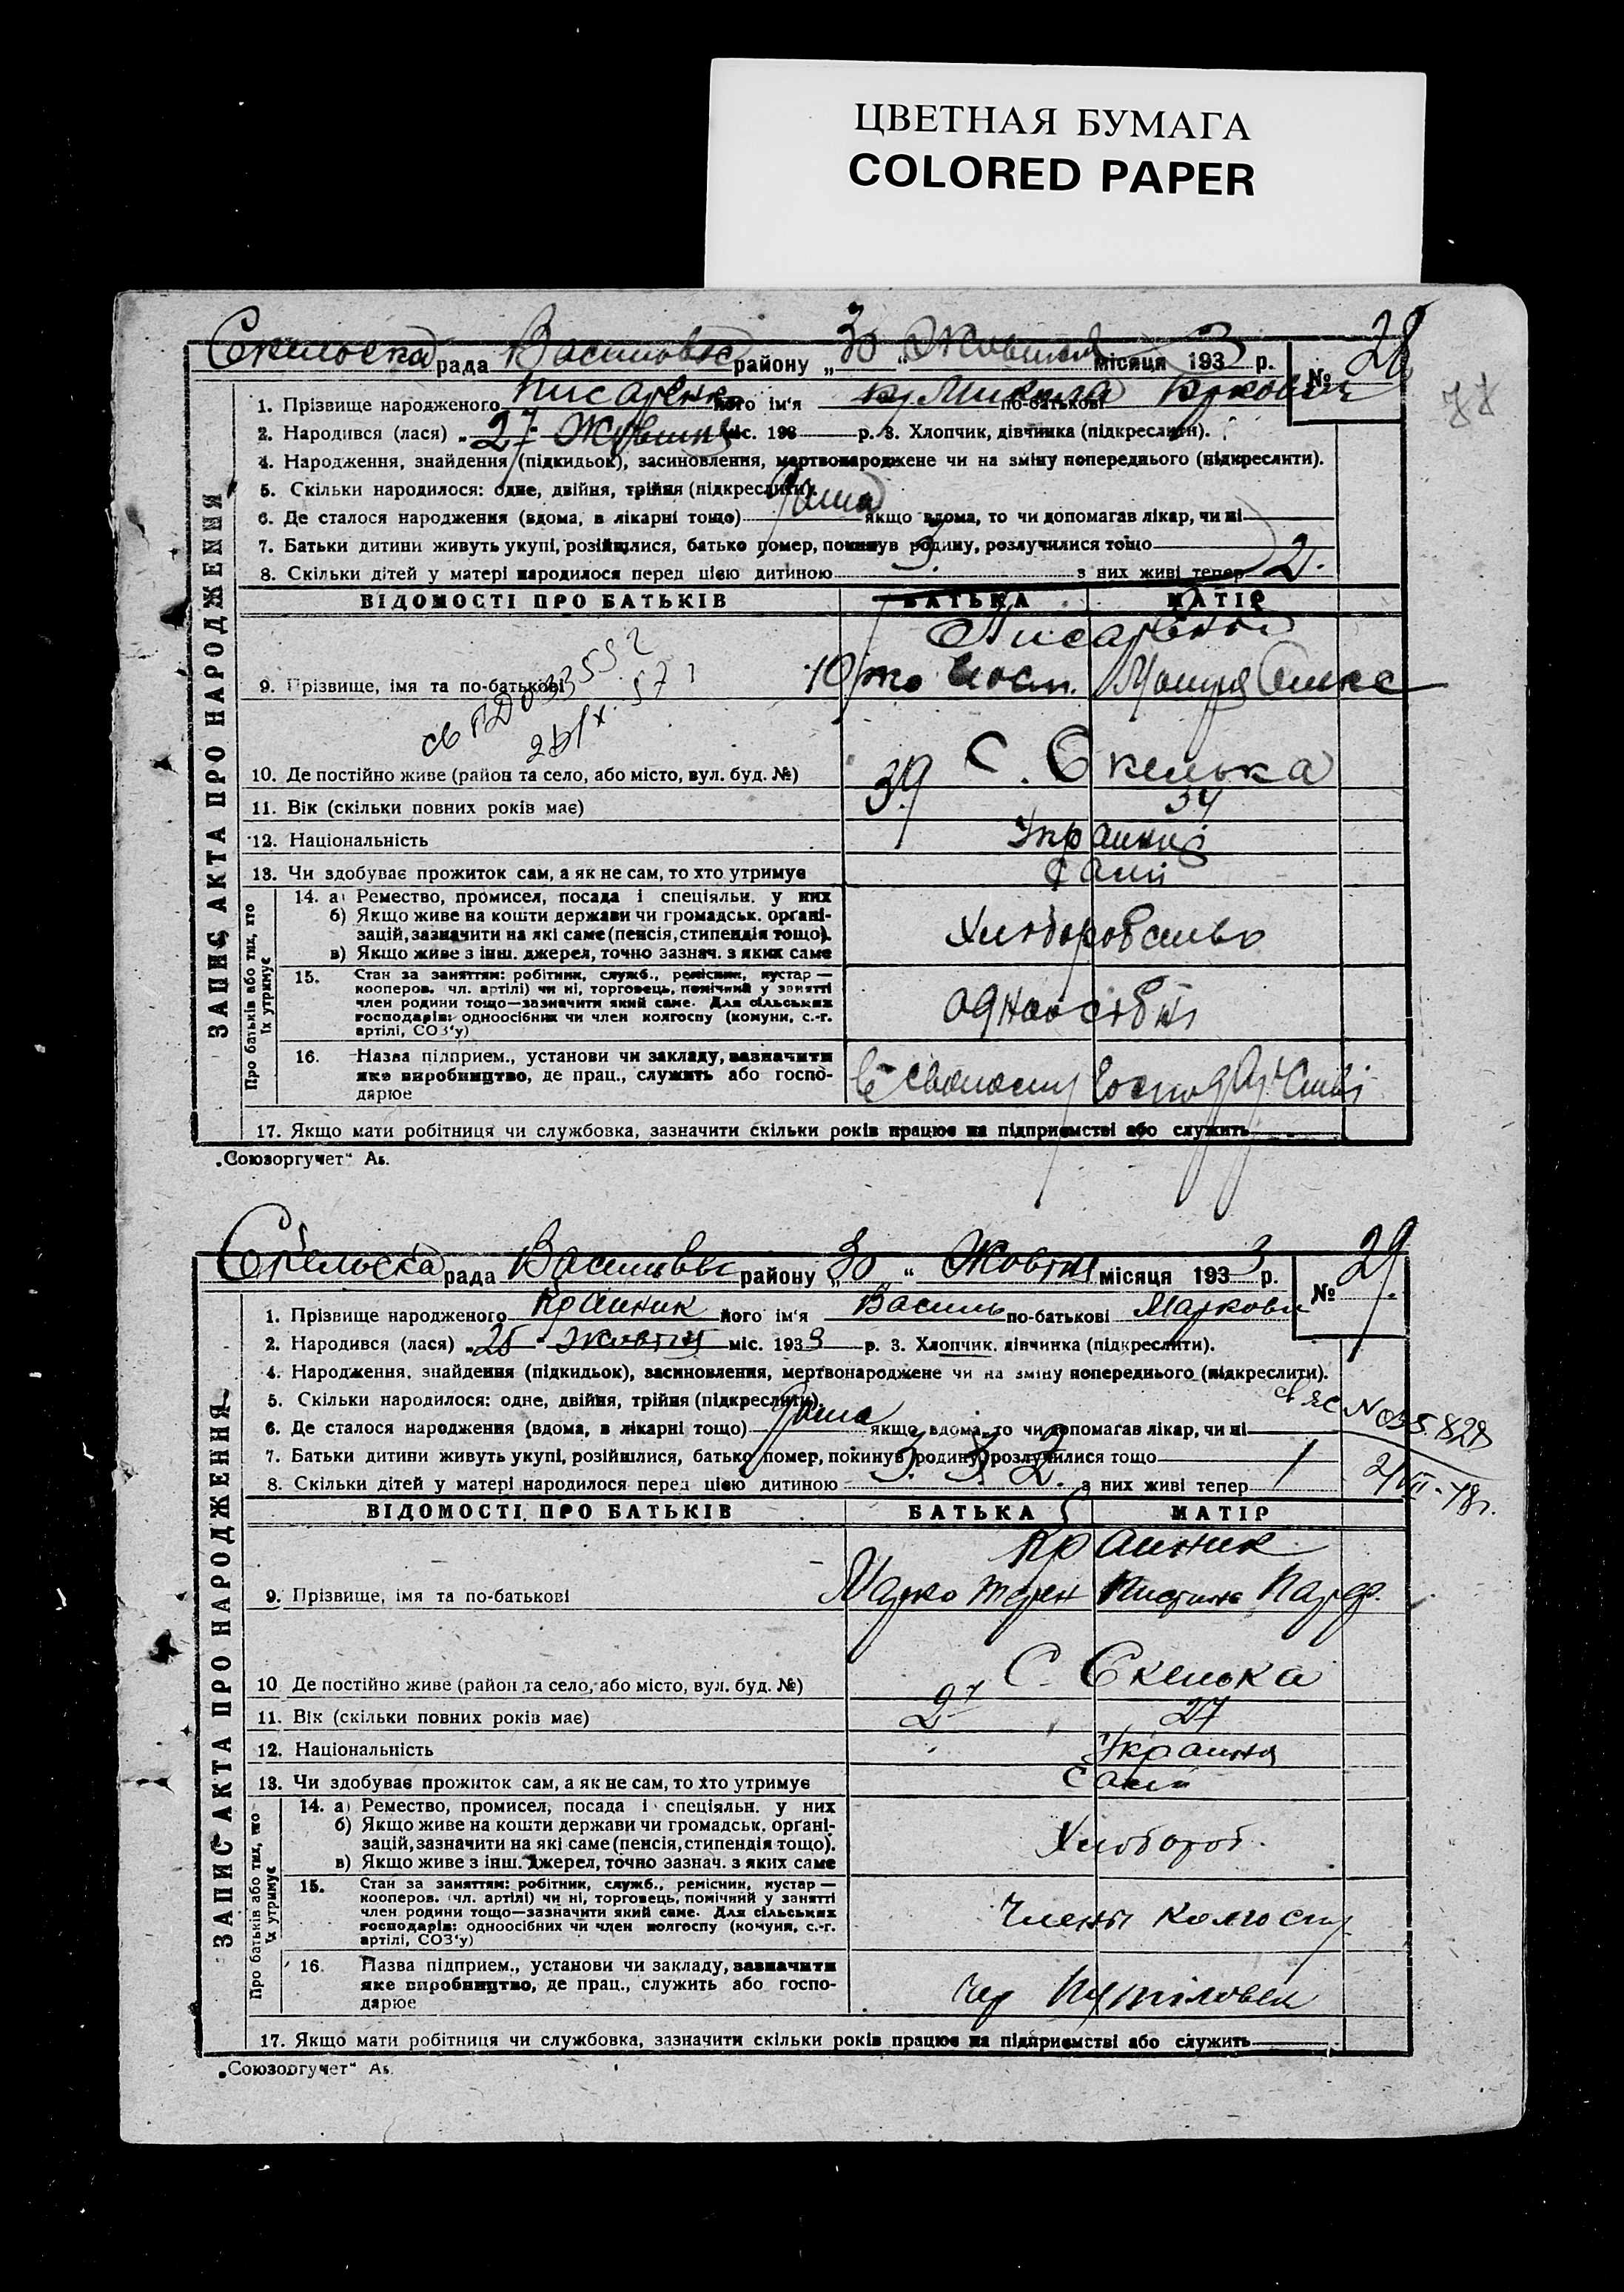 ЦВЕТНАЯ БУМАГА
COLORED PAPER
Скельоска рада Василівс району „30“ Жовтня місяця 1933 р. № 28
1. Прізвище народженого Писаренко його ім'я Микита по-батькові Юркович
2. Народився (лася) „27“ Жовтня міс. 193 р. 3. Хлопчик, дівчинка (підкреслити).
4. Народження, знайдення (підкидьок), засиновлення, мертвонароджене чи на зміну попереднього (підкреслити).
5. Скільки народилося: одне, двійня, трійня (підкреслити).
6. Де сталося народження (вдома, в лікарні тощо) дома якщо вдома, то чи допомагав лікар, чи ні
7. Батьки дитини живуть укупі, розійшлися, батько помер, покинув родину, розлучилися тощо
8. Скільки дітей у матері народилося перед цією дитиною 3. з них живі тепер 2.
ЗАПИС АКТА ПРО НАРОДЖЕННЯ
ВІДОМОСТІ ПРО БАТЬКІВ БАТЬКА МАТІР
Писаренки
9. Прізвище, імя та по-батькові
10. Де постійно живе (район та село, або місто, вул. буд. №) С. Скелька
11. Вік (скільки повних років має) 39 34
12. Національність Украинці
13. Чи здобуває прожиток сам, а як не сам, то хто утримує Самі
Про батьків або тих, хто їх утримує
14. а) Ремество, промисел, посада і спеціяльн. у них
б) Якщо живе на кошти держави чи громадськ. органі-
зацій, зазначити на які саме (пенсія, стипендія тощо).
в) Якщо живе з інш. джерел, точно зазнач. з яких саме
Хлиборобство
15. Стан за заняттям: робітник, служб., ремісник, кустар —
кооперов. чл. артілі) чи ні, торговець, помічний у занятті
член родини тощо—зазначити який саме. Для сільських
господарів: одноосібних чи член колгоспу (комуни, с.-г.
артілі, СОЗ'у)
одноосібні
16. Назва підприєм., установи чи закладу, зазначити
яке виробництво, де прац., служить або госпо-
дарює
в своєому
17. Якщо мати робітниця чи службовка, зазначити скільки років працює на підприємстві або служить
„Союзоргучет“ Ає.
Скельоска рада Василівс району „30“ Жовтня місяця 1933 р. № 29
1. Прізвище народженого Краиник його ім'я Василь по-батькові Маркови
2. Народився (лася) „25“ Жовтня міс. 1933 р. 3. Хлопчик, дівчинка (підкреслити).
4. Народження, знайдення (підкидьок), засиновлення, мертвонароджене чи на зміну попереднього (підкреслити).
5. Скільки народилося: одне, двійня, трійня (підкреслити).
6. Де сталося народження (вдома, в лікарні тощо) дома якщо вдома, то чи допомагав лікар, чи ні
7. Батьки дитини живуть укупі, розійшлися, батько помер, покинув родину, розлучилися тощо
8. Скільки дітей у матері народилося перед цією дитиною з них живі тепер 1
ЗАПИС АКТА ПРО НАРОДЖЕННЯ
ВІДОМОСТІ ПРО БАТЬКІВ БАТЬКА МАТІР
Краиник
9. Прізвище, імя та по-батькові Марко
10 Де постійно живе (район та село, або місто, вул. буд. №) С. Скелька
11. Вік (скільки повних років має) 27 27
12. Національність Украинц
13. Чи здобуває прожиток сам, а як не сам, то хто утримує Самі
Про батьків або тих, що їх утримує
14. а) Ремество, промисел, посада і спеціяльн. у них
б) Якщо живе на кошти держави чи громадськ. органі-
зацій, зазначити на які саме (пенсія, стипендія тощо).
в) Якщо живе з інш. джерел, точно зазнач. з яких саме
Хлибороб.
15. Стан за заняттям: робітник, служб., ремісник, кустар —
кооперов. (чл. артілі) чи ні, торговець, помічний у занятті
член родини тощо—зазначити який саме. Для сільських
господарів: одноосібних чи член колгоспу (комуни, с.-г.
артілі, СОЗ'у)
Члени колгоспу
16. Назва підприєм., установи чи закладу, зазначити
яке виробництво, де прац., служить або госпо-
дарює
Чер Путіловец
17. Якщо мати робітниця чи службовка, зазначити скільки років працює на підприємстві або служить
„Союзоргучет“ Ає.